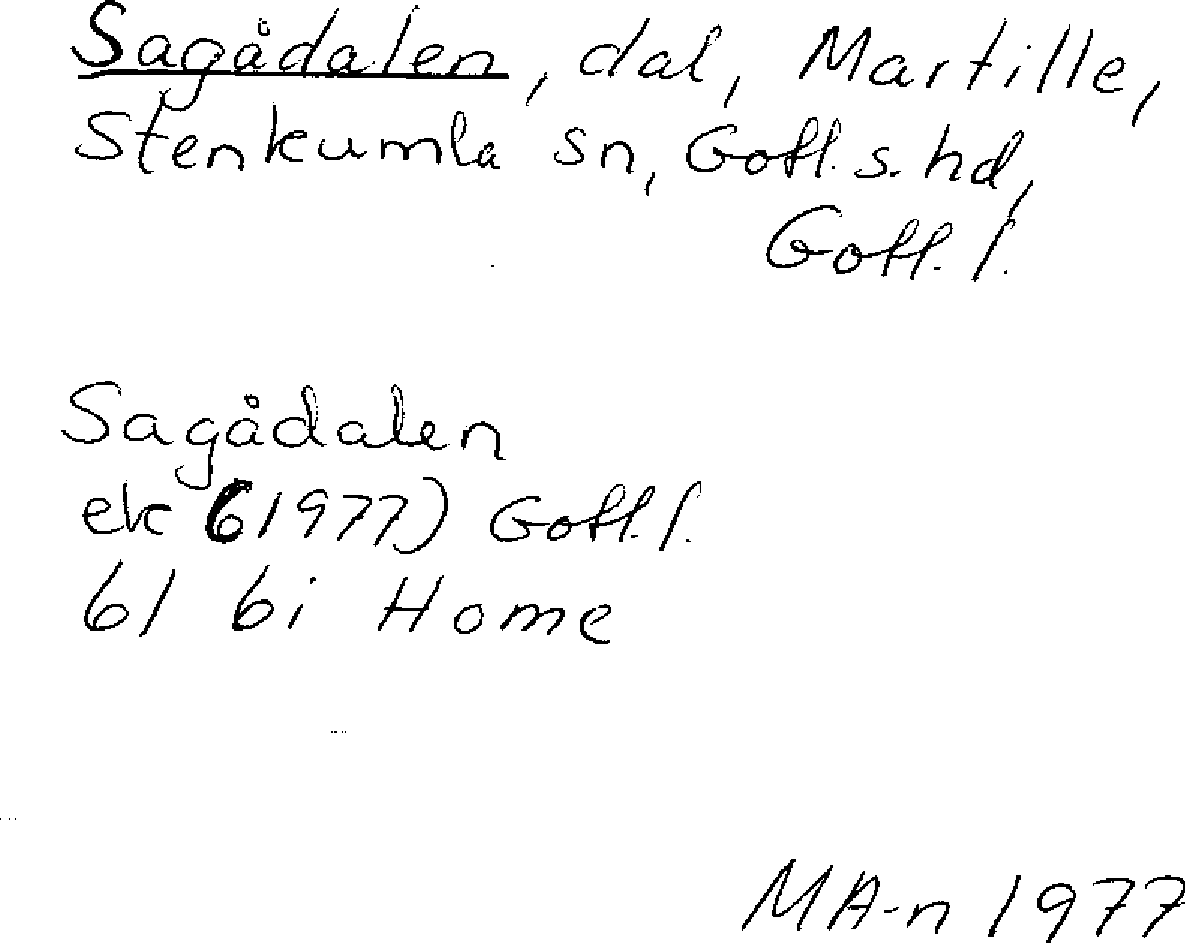 Sagådalen, dal, Martille,
Stenkumla sn, Gotl. s. hd,
Gotl. l.
Sagådalen
ek (1977) Gotl. l.
6I 6i Home
MA-n 1977